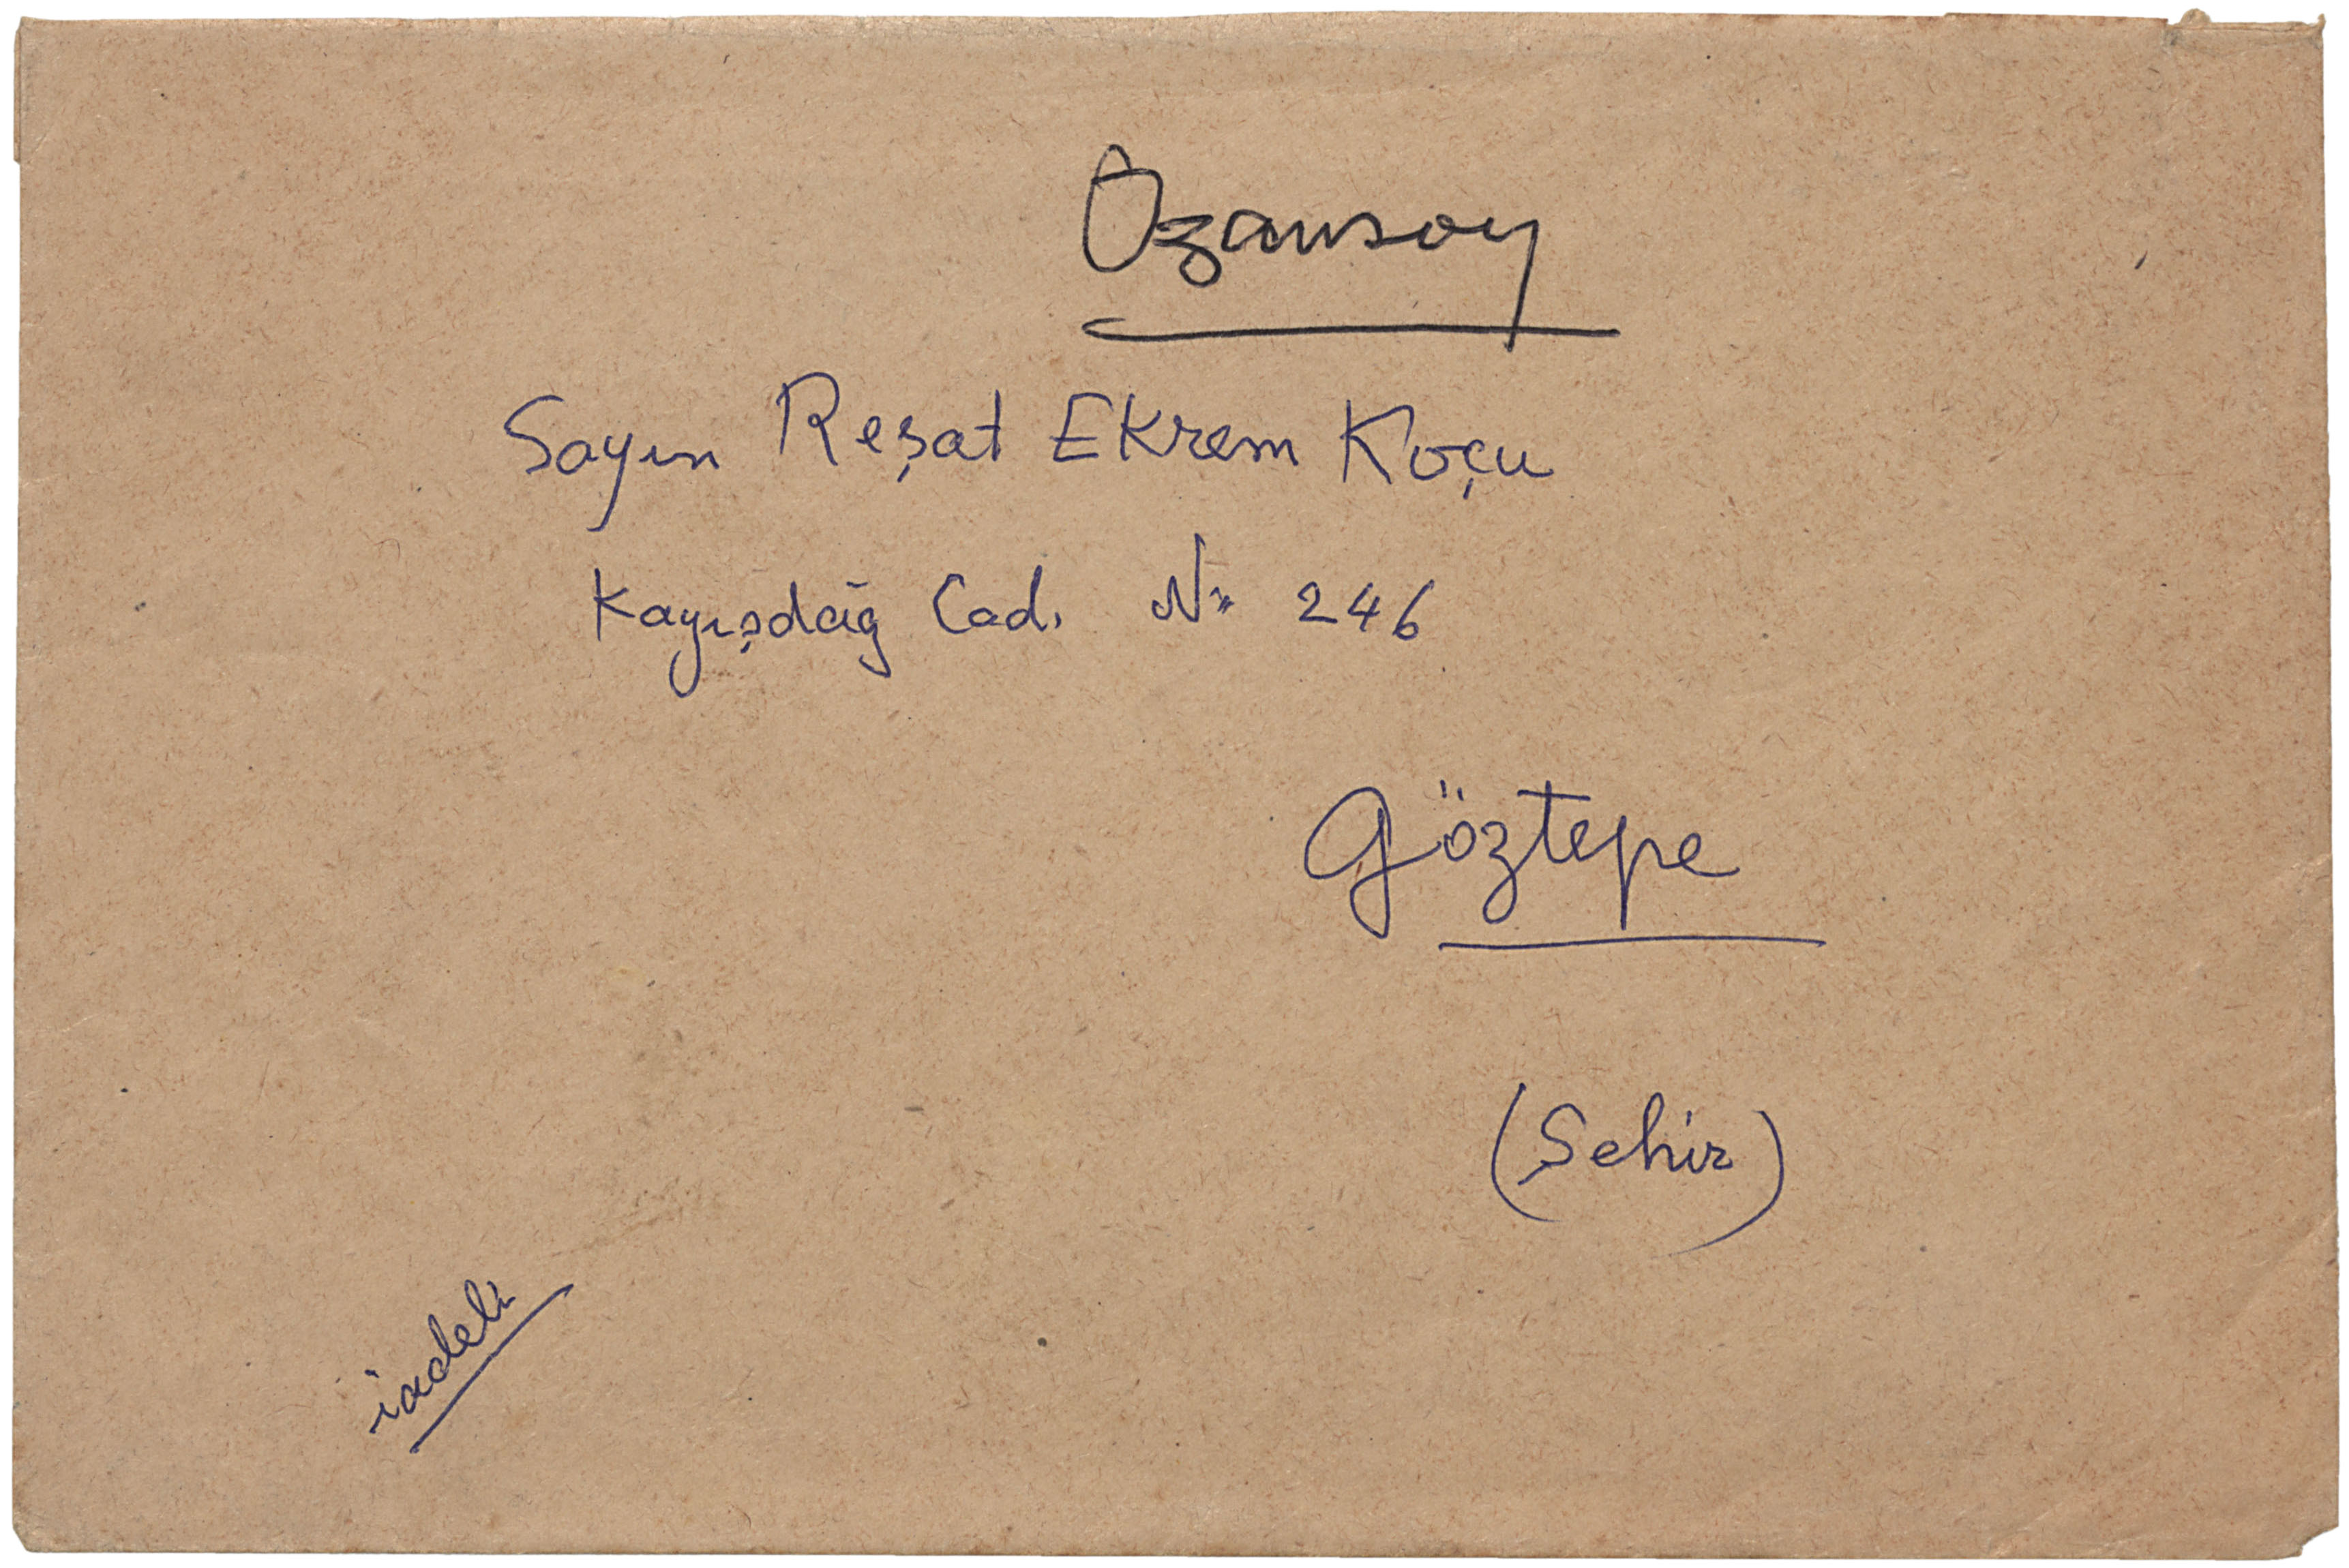 Ozansoy
Sayın Reşat Ekrem Koçu
Kayışdağ Cad. No 246
Göztepe
(Şehir)
iadeli